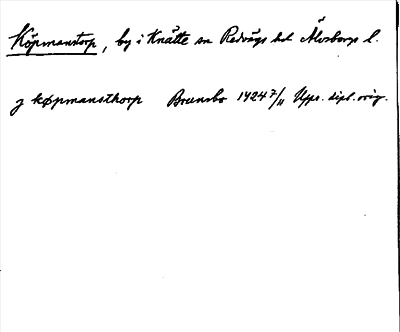 Köpmanstorp, by i Knätte sn Redvägs hd Älvsborgs l.
j køpmansthorp Brunsbo 1424 7/11 Upps. dipl. orig.